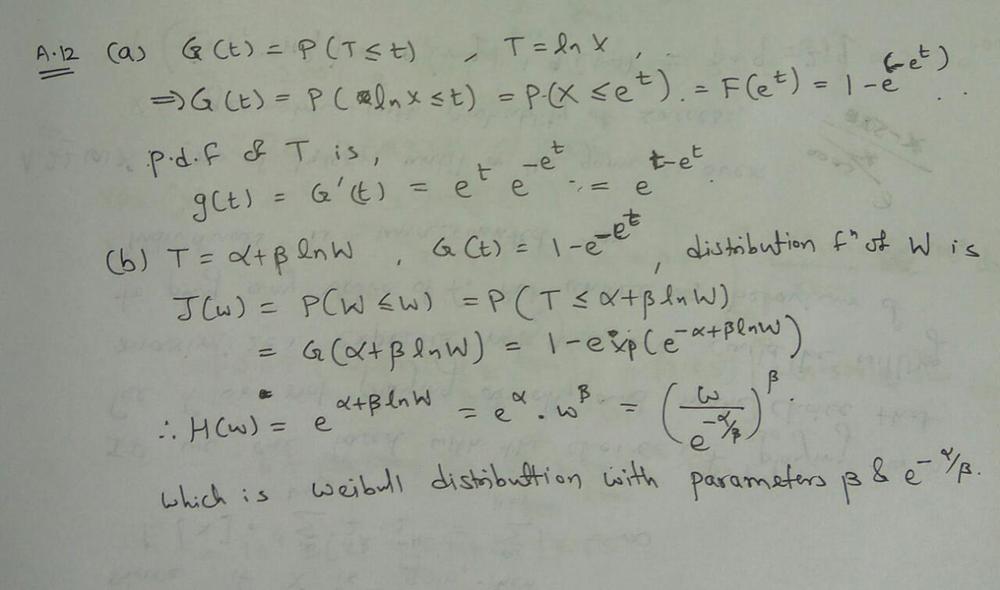 A.12 (a) G(t) = P(T ≤ t) , T = ln X ,
⇒ G(t) = P( ln X ≤ t) = P(X ≤ e^t). = F(e^t) = 1 - e^(-e^t) ..
p.d.f of T is,
g(t) = G'(t) = e^t e^-e^t .= e^t-e^t.
(b) T = α+β lnW , G(t) = 1 - e^-e^t , distribution fⁿ of W is
J(w) = P(W ≤ w) = P(T ≤ α+β lnW)
= G(α+β lnW) = 1 - exp(e^-α+β lnW)
∴ H(w) = e^α+β lnW = e^α . w^β = (w / e^-α/β)^β.
which is weibull distribution with parameters β & e^-α/β.